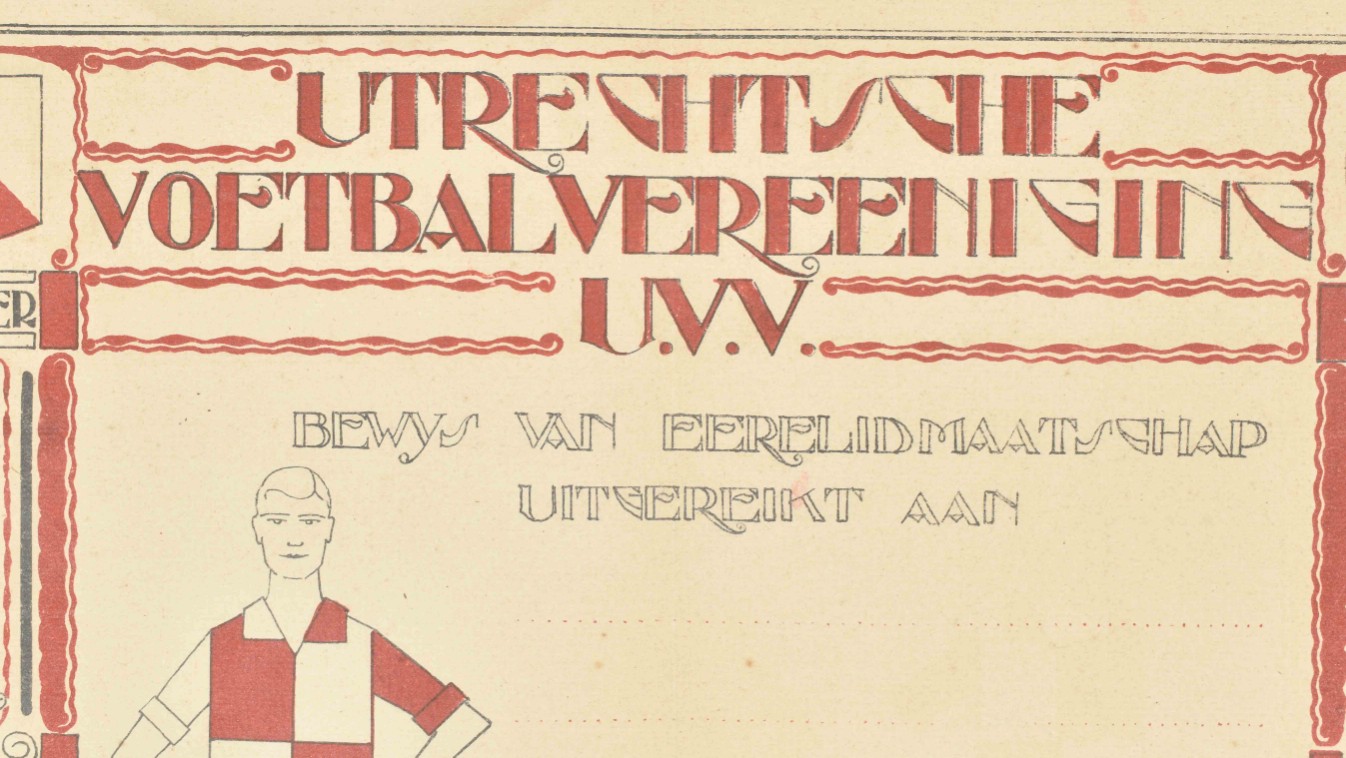 UTRECHTSCHE
VOETBALVEREENIGING
U.V.V.
BEWYS VAN EERELIDMAATSCHAP
UITGEREIKT AAN